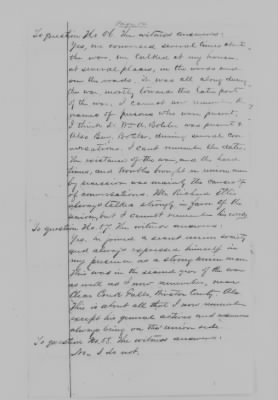 To question No. 66 The witness answers:
Yes, we conversed several times about
the war, we talked at my house,
at several places, in the woods and
on the roads. It was all along during
the war mostly towards the later part
of the war. I cannot now remember the
names of persons who were present,
I think Dr. Wm A. was present &
also Ben. during several con-
versations. I cant remember the dates.
The existence of the war, and the hard
times, and troubles brought on union men
by secession was mainly the cause of
of conversations. Mr. Richard
always talked strongly in favor of the
union, but I cannot remember his words
To question No. 67 The witness answers:
Yes, he joined a secret union society
and always expressed himself in
my presence as a strong union man
This was in the second year of the war
as well as I now remember, near
Clear Creek Falls, Winston County, Ala
This is about all that I now remember
except his general actions and
always being on the union side
To question No. 68. The witness answers:
No. I do not.